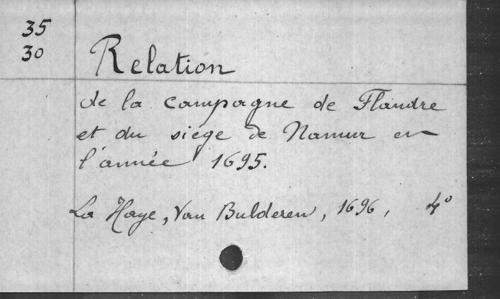 35
30
Relation
de la campagne de Flandre
et du siége de Namur en
l'année 1695.
La Haye, Van Bulderen, 1696, 4°